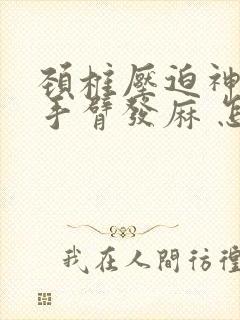 頸椎壓迫神
手臂發麻 怎
我在人間彷徨